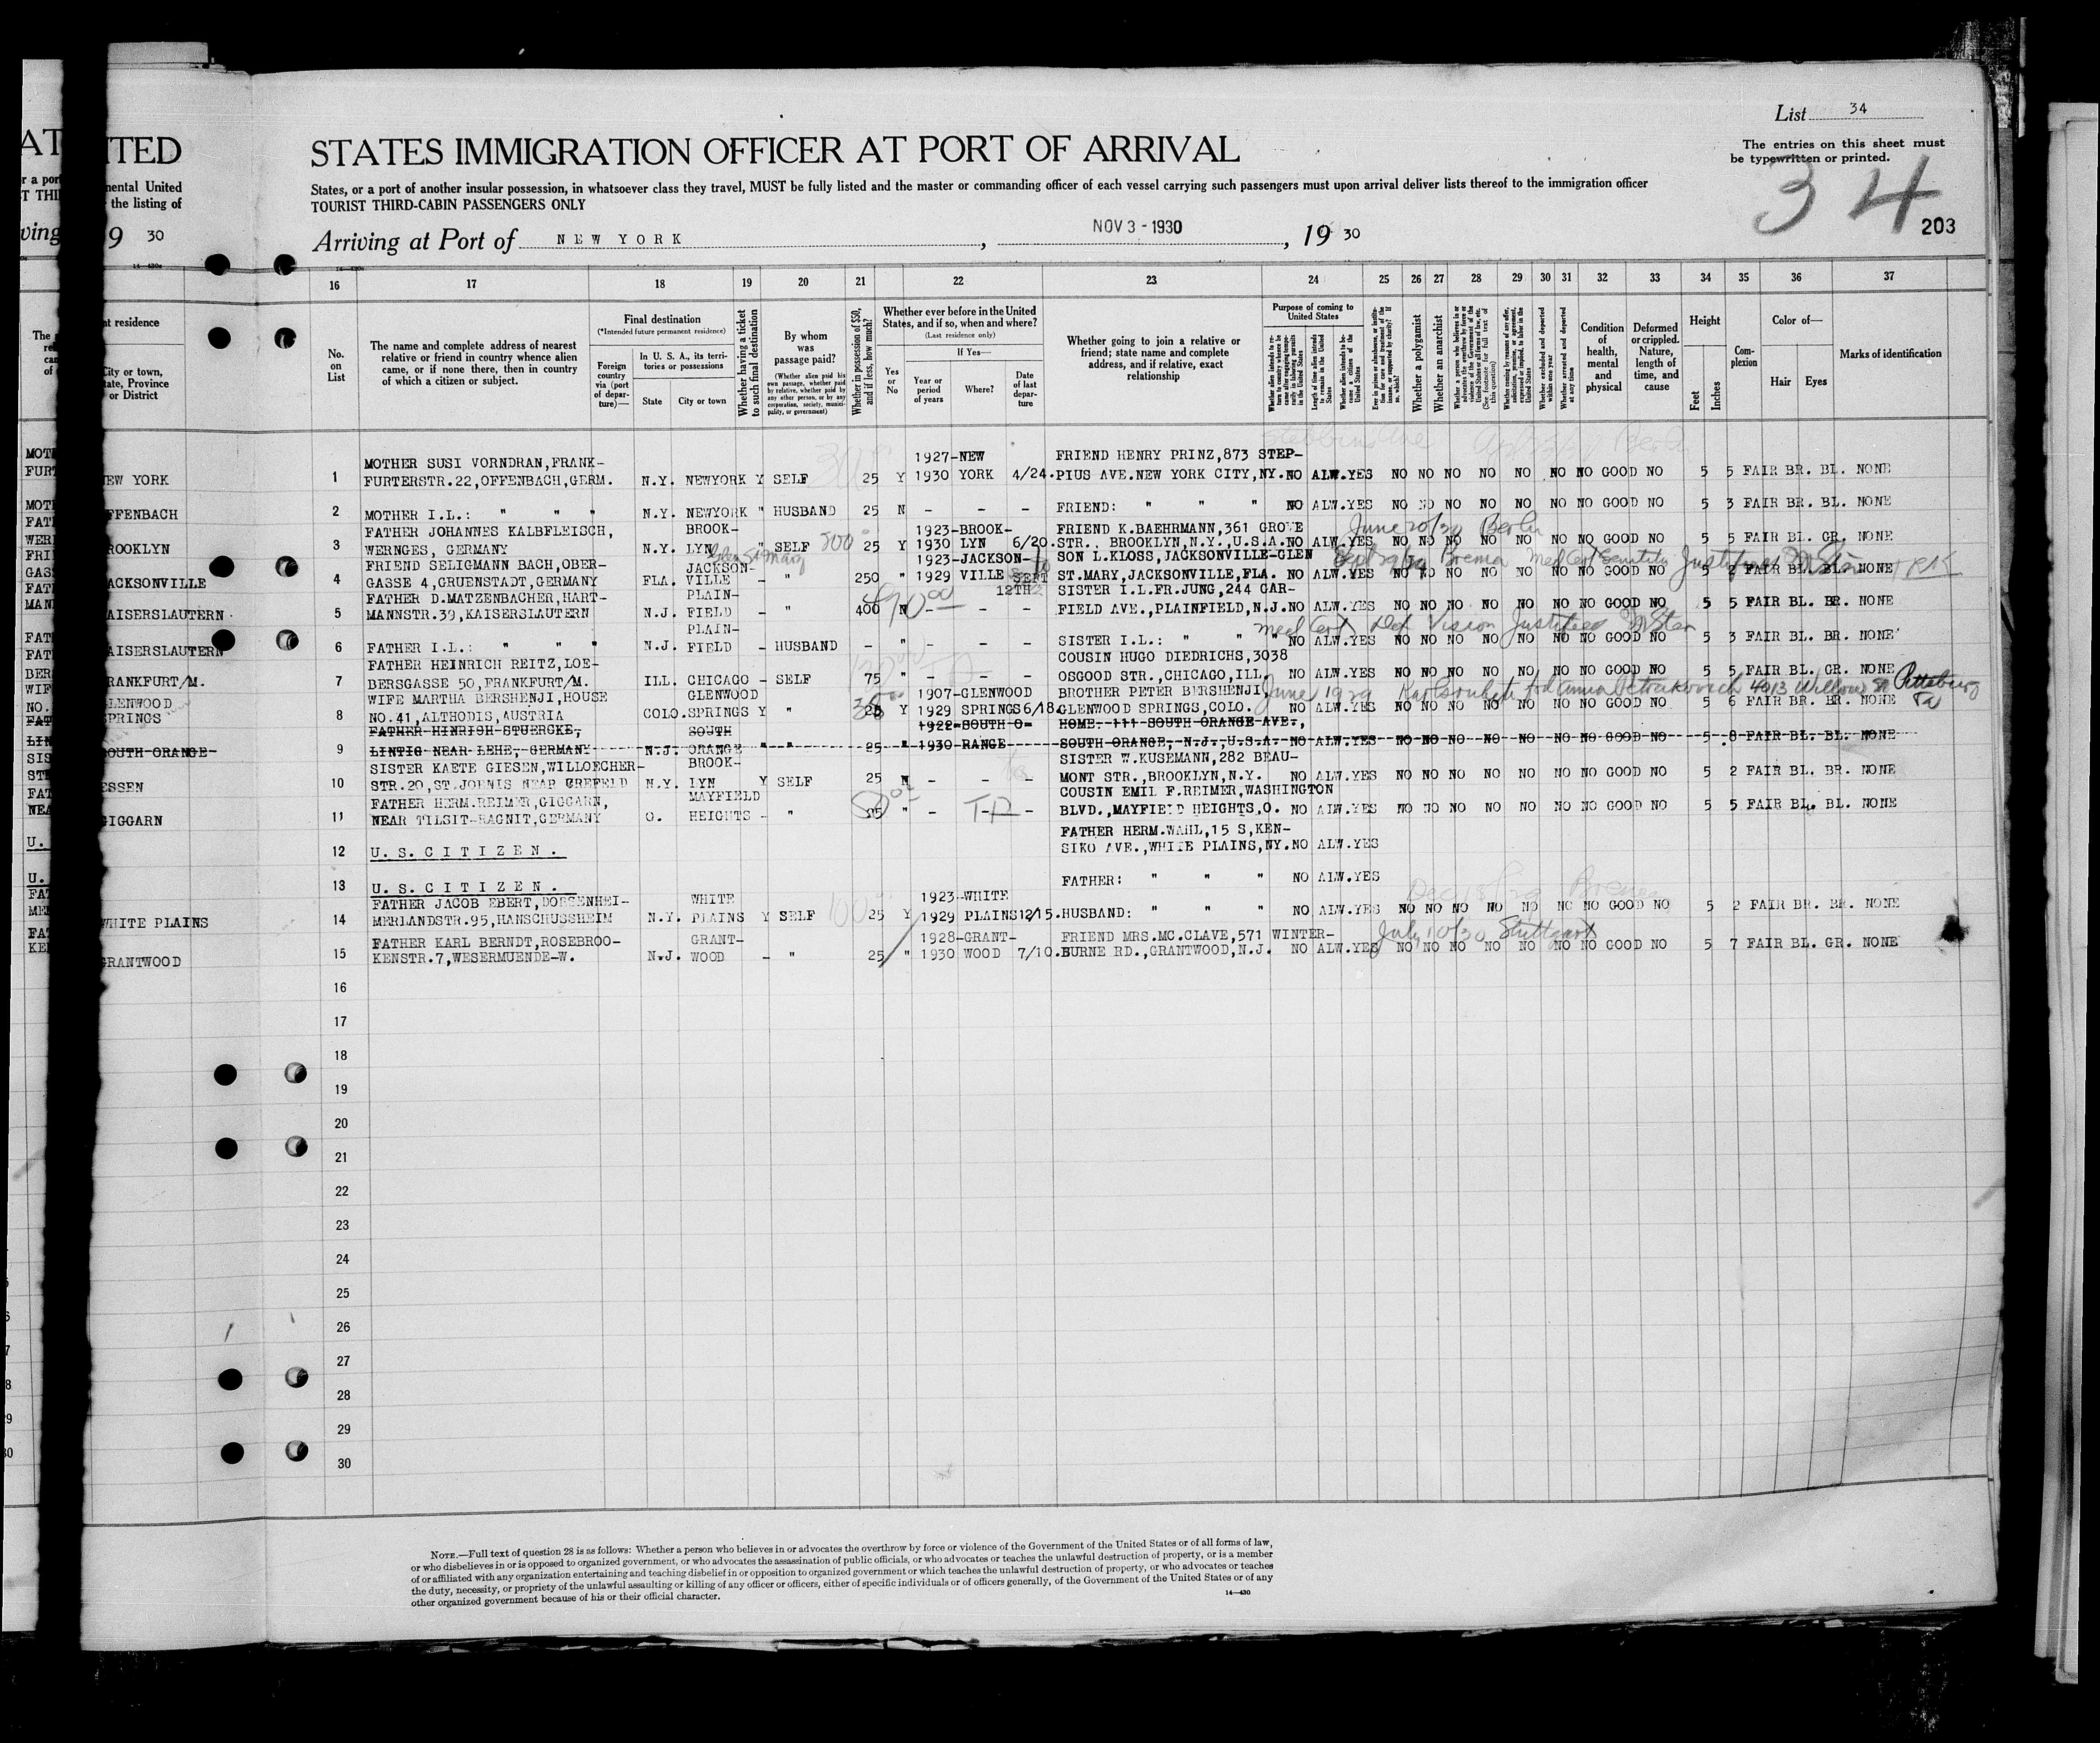 List 34
STATES IMMIGRATION OFFICER AT PORT OF ARRIVAL
The entries on this sheet must
be typewritten or printed.
States, or a port of another insular possession, in whatsoever class they travel, MUST be fully listed and the master or commanding officer of each vessel carrying such passengers must upon arrival deliver lists thereof to the immigration officer
TOURIST THIRD-CABIN PASSENGERS ONLY
34
203
Arriving at Port of NEW YORK, NOV 3 - 1930, 19 30
16 17 18 19 20 21 22 23 24 25 26 27 28 29 30 31 32 33 34 35 36 37
No. on List
The name and complete address of nearest relative or friend in country whence alien came, or if none there, then in country of which a citizen or subject.
Final destination
(*Intended future permanent residence)
Foreign country via (port of departure)—
In U. S. A., its territories or possessions
State
City or town
Whether having a ticket to such final destination
By whom was passage paid?
(Whether alien paid his own passage, whether paid by relative, whether paid by any other person, or by any corporation, society, municipality, or government)
Whether in possession of $50, and if less, how much?
Whether ever before in the United States, and if so, when and where?
(Last residence only)
Yes or No
If Yes—
Year or period of years
Where?
Date of last departure
Whether going to join a relative or friend; state name and complete address, and if relative, exact relationship
Purpose of coming to United States
Whether a polygamist
Whether an anarchist
Condition of health, mental and physical
Deformed or crippled. Nature, length of time, and cause
Height
Feet
Inches
Complexion
Color of—
Hair
Eyes
Marks of identification
MOTHER SUSI VORNDRAN,FRANK- 1927-NEW FRIEND HENRY PRINZ,873 STEP-
NEW YORK 1 FURTERSTR.22,OFFENBACH,GERM. N.Y. NEWYORK Y SELF 25 Y 1930 YORK 4/24. PIUS AVE.NEW YORK CITY,NY. NO ALW.YES NO NO NO NO NO NO NO GOOD NO 5 5 FAIR BR. BL. NONE
OFFENBACH 2 MOTHER I.L.: " " " N.Y. NEWYORK " HUSBAND 25 N - - - FRIEND: " " " NO ALW.YES NO NO NO NO NO NO NO GOOD NO 5 3 FAIR BR. BL. NONE
FATHER JOHANNES KALBFLEISCH, BROOK- 1923-BROOK- FRIEND K.BAEHRMANN,361 GROVE June 20/30 Berlin
ROOKLYN 3 WERNGES, GERMANY N.Y. LYN " SELF 25 Y 1930 LYN 6/20. STR., BROOKLYN,N.Y.,U.S.A. NO ALW.YES NO NO NO NO NO NO NO GOOD NO 5 5 FAIR BL. GR. NONE
FRIEND SELIGMANN BACH,OBER- JACKSON- 1923-JACKSON- SON L.KLOSS,JACKSONVILLE-GLEN
JACKSONVILLE 4 GASSE 4,GRUENSTADT,GERMANY FLA. VILLE - " 250 " 1929 VILLE SEPT 12TH ST.MARY,JACKSONVILLE,FLA. NO ALW.YES NO NO NO NO NO NO NO GOOD NO 5 2 FAIR BL. BL. NONE
FATHER D.MATZENBACHER,HART- PLAIN- SISTER I.L.FR.JUNG,244 GAR-
KAISERSLAUTERN 5 MANNSTR.39,KAISERSLAUTERN N.J. FIELD - " 400 N - - - FIELD AVE.,PLAINFIELD,N.J. NO ALW.YES NO NO NO NO NO NO NO GOOD NO 5 5 FAIR BL. BR. NONE
PLAIN- Med Cert Def Vision Justified
KAISERSLAUTERN 6 FATHER I.L.: " " " N.J. FIELD - HUSBAND - " - - - SISTER I.L.: " " " NO ALW.YES NO NO NO NO NO NO NO GOOD NO 5 3 FAIR BL. BR. NONE
FATHER HEINRICH REITZ,LOE- COUSIN HUGO DIEDRICHS,3038
FRANKFURT/M. 7 BERSGASSE 50,FRANKFURT/M. ILL. CHICAGO - SELF 75 " - - - OSGOOD STR.,CHICAGO,ILL. NO ALW.YES NO NO NO NO NO NO NO GOOD NO 5 5 FAIR BL. GR. NONE
WIFE MARTHA BERSHENJI,HOUSE GLENWOOD 1907-GLENWOOD BROTHER PETER BERSHENJI, June 1929 Anna 4013 Willow St Pittsburg Pa
GLENWOOD SPRINGS 8 NO.41,ALTHODIS,AUSTRIA COLO. SPRINGS Y " 25 Y 1929 SPRINGS 6/18. GLENWOOD SPRINGS,COLO. NO ALW.YES NO NO NO NO NO NO NO GOOD NO 5 6 FAIR BR. BR. NONE
FATHER HINRICH STUERCKE, SOUTH 1922-SOUTH O- HOME: 111 SOUTH ORANGE AVE.,
SOUTH ORANGE 9 LINTIG NEAR LEHE, GERMANY N.J. ORANGE " " 25 " 1930 RANGE SOUTH ORANGE, N.J.,U.S.A. NO ALW.YES NO NO NO NO NO NO NO GOOD NO 5 8 FAIR BL. BL. NONE
SISTER KAETE GIESEN,WILLOECHER- BROOK- SISTER W.KUSEMANN,282 BEAU-
ESSEN 10 STR.20,ST.JOENIS NEAR CREFELD N.Y. LYN Y SELF 25 N - - - MONT STR.,BROOKLYN,N.Y. NO ALW.YES NO NO NO NO NO NO NO GOOD NO 5 2 FAIR BL. BR. NONE
FATHER HERM.REIMER,GIGGARN, MAYFIELD COUSIN EMIL F.REIMER,WASHINGTON
GIGGARN 11 NEAR TILSIT-RAGNIT,GERMANY O. HEIGHTS - " " - - - BLVD.,MAYFIELD HEIGHTS,O. NO ALW.YES NO NO NO NO NO NO NO GOOD NO 5 5 FAIR BL. BL. NONE
FATHER HERM.WAHL,15 S,KEN-
12 U.S.CITIZEN. SIKO AVE.,WHITE PLAINS,NY. NO ALW.YES
13 U.S.CITIZEN. FATHER: " " " NO ALW.YES
FATHER JACOB EBERT,DOSSENHEI- WHITE 1923-WHITE
WHITE PLAINS 14 MERLANDSTR.95,HANSCHUSSHEIM N.Y. PLAINS Y SELF 25 Y 1929 PLAINS 12/15. HUSBAND: " " " NO ALW.YES NO NO NO NO NO NO NO GOOD NO 5 2 FAIR BR. BR. NONE
FATHER KARL BERNDT,ROSEBROO- GRANT- 1928-GRANT- FRIEND MRS.MC.CLAVE,571 WINTER- July 10/30 Stuttgart
GRANTWOOD 15 KENSTR.7,WESERMUENDE-W. N.J. WOOD - " 25 " 1930 WOOD 7/10. BURNE RD.,GRANTWOOD,N.J. NO ALW.YES NO NO NO NO NO NO NO GOOD NO 5 7 FAIR BL. GR. NONE
16
17
18
19
20
21
22
23
24
25
26
27
28
29
30
NOTE.—Full text of question 28 is as follows: Whether a person who believes in or advocates the overthrow by force or violence of the Government of the United States or of all forms of law,
or who disbelieves in or is opposed to organized government, or who advocates the assassination of public officials, or who advocates or teaches the unlawful destruction of property, or is a member
of or affiliated with any organization entertaining and teaching disbelief in or opposition to organized government or which teaches the unlawful destruction of property, or who advocates or teaches
the duty, necessity, or propriety of the unlawful assaulting or killing of any officer or officers, either of specific individuals or of officers generally, of the Government of the United States or of any
other organized government because of his or their official character.
14—430